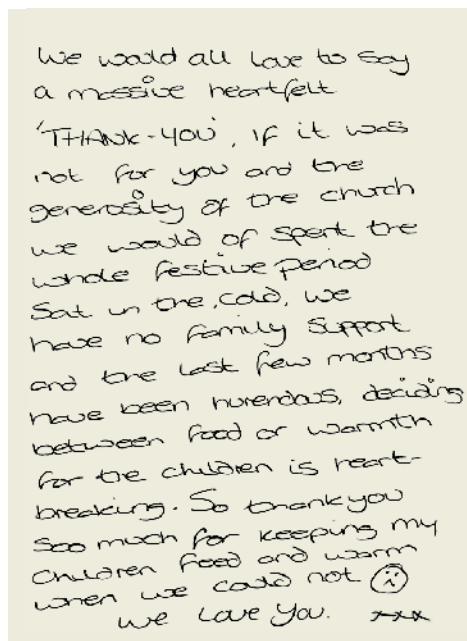 We would all love to say
a massive heartfelt
'THANK-YOU', If it was
not for you and the
generosity of the church
we would of spent the
whole festive period
Sat in the, cold, we
have no family support
and the last few months
have been hurendous, deciding
between food or warmth
for the children is heart-
breaking. So thankyou
soo much for keeping my
children feed and warm
when we could not ☹
We Love You. xxx